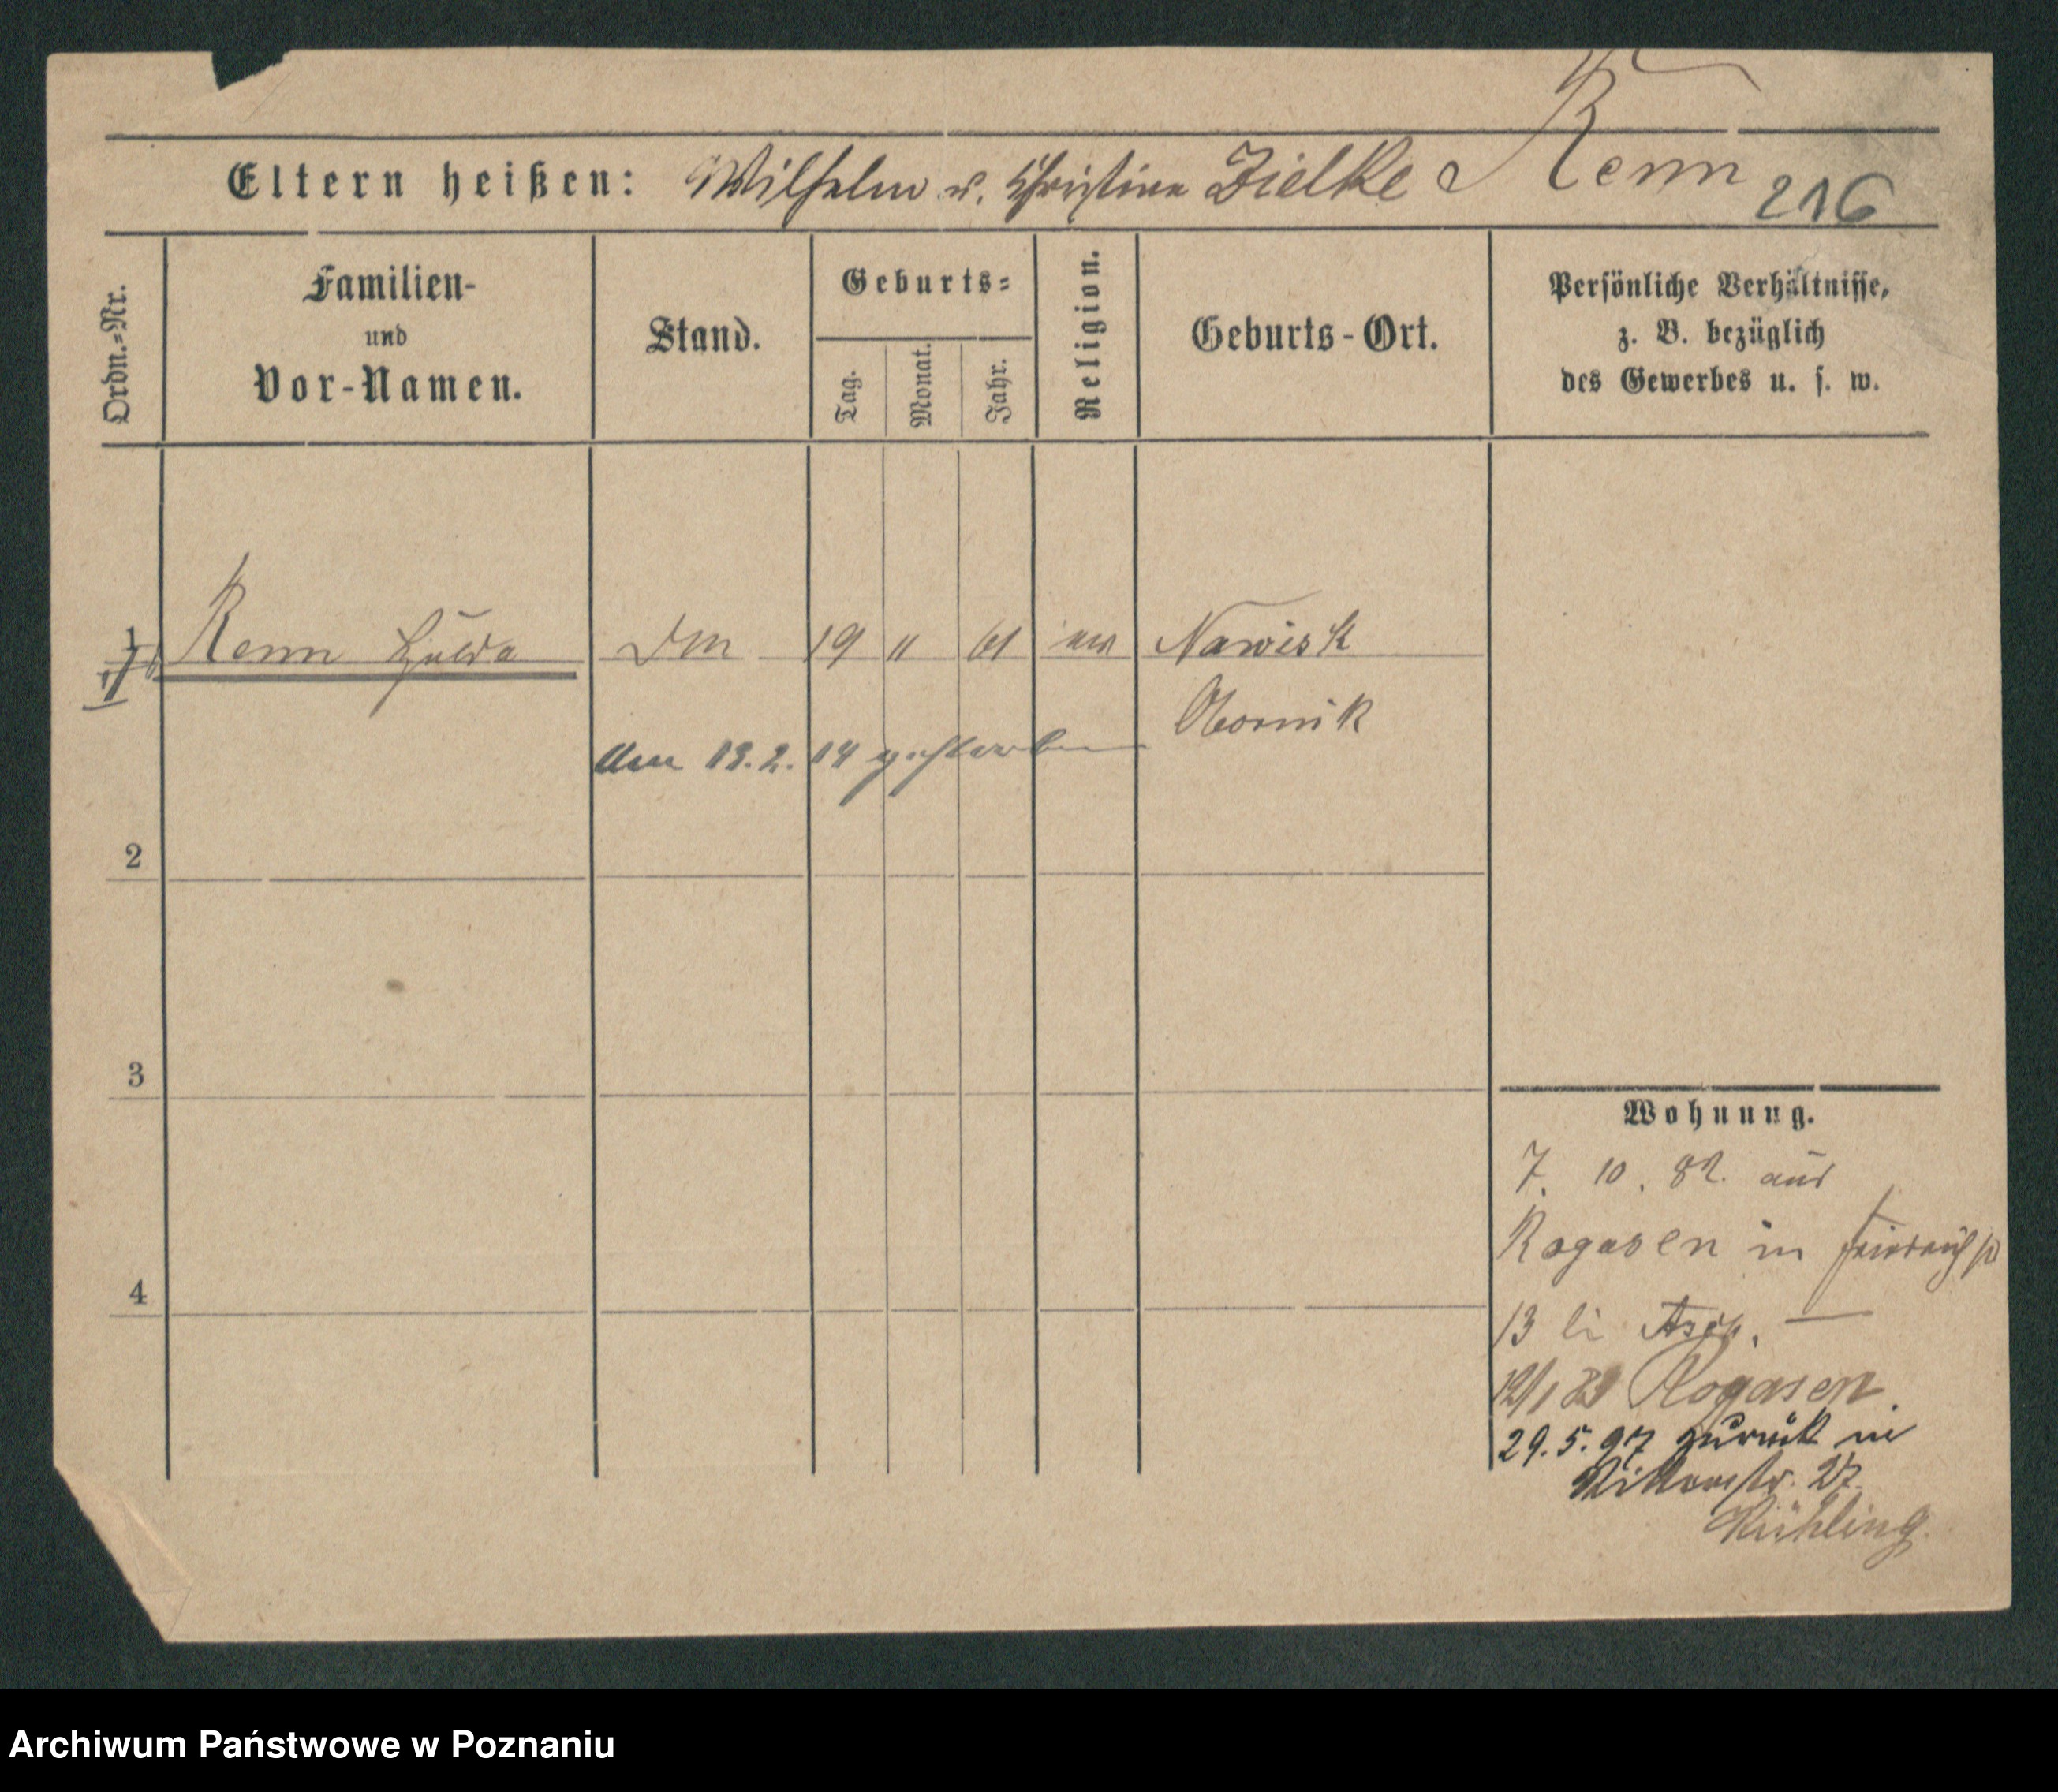 Renn
Eltern heißen: Wilhelm u. Christine Zielke
216
Ordn.-Nr.
Familien-
und
Vor-Namen.
Stand.
Geburts-
Tag.
Monat.
Jahr.
Religion.
Geburts-Ort.
Persönliche Verhältnisse,
z. B. bezüglich
des Gewerbes u. s. w.
1 Renn Hulda 19 11 61 Nawisk
Obornik
Am 13.2.14 gestorben
2
3
4
Wohnung.
7. 10. 82. aus
Rogasen in
13 bei
Rogasen
29.5.97 zurück in
Ritterstr. 27
Kühling
Archiwum Państwowe w Poznaniu